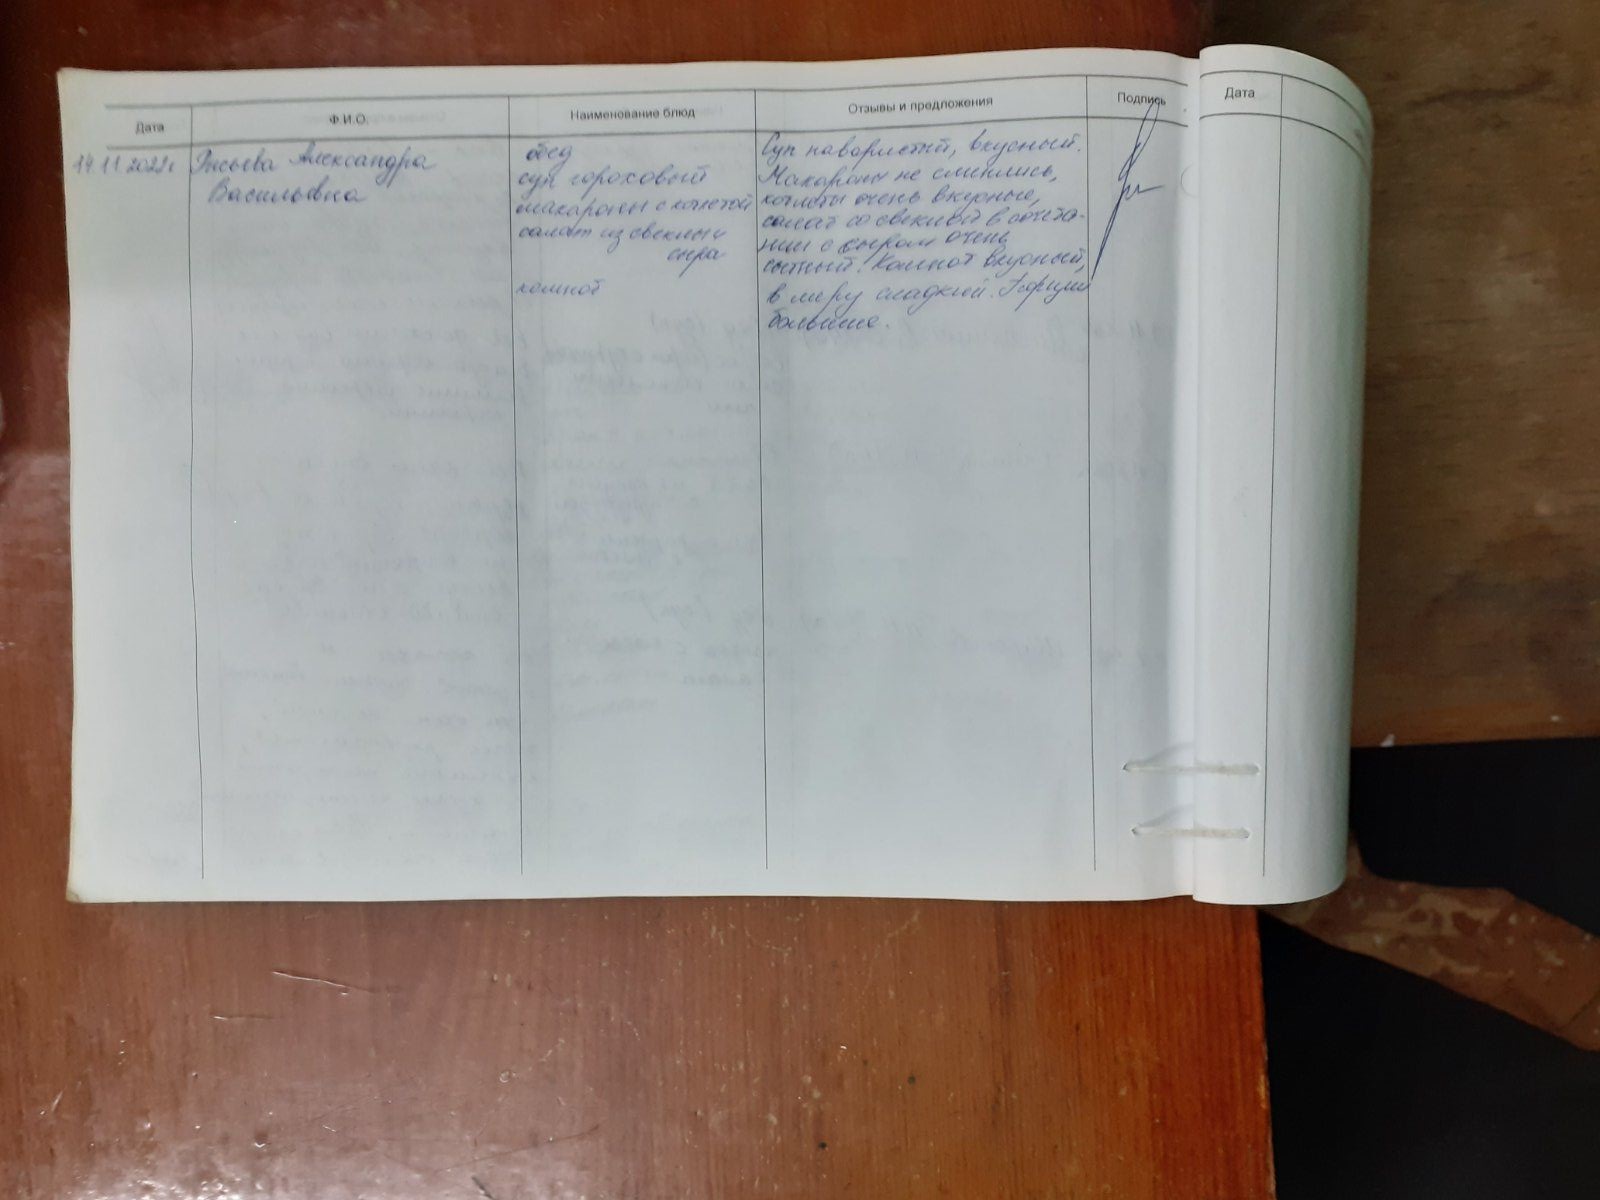 Дата Ф.И.О. Наименование блюд Отзывы и предложения Подпись Дата
14.11.2022г
Александра
Васильевна
обед
суп гороховый
макароны с котлетой
салат из свеклы и
сыра
компот
Суп наваристый, вкусный.
Макароны не слиплись,
котлеты очень вкусные,
салат со свеклой в сочета-
нии с сыром очень
сытный. Компот вкусный,
в меру сладкий. Порции
большие.